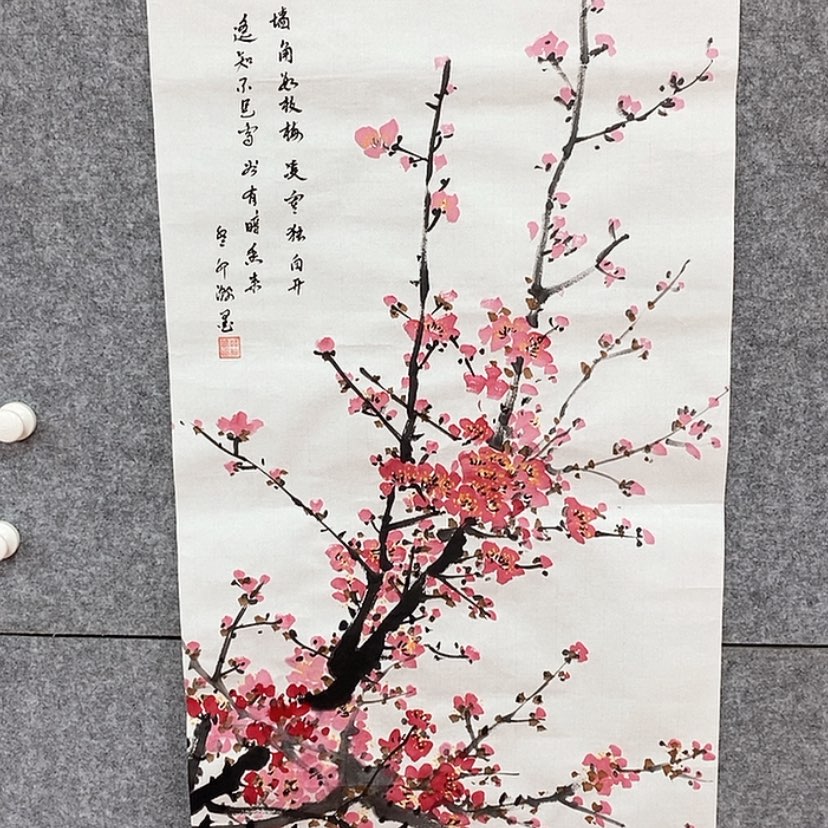 墙角数枝梅凌寒独自开
遥知不是雪为有暗香来
癸卯